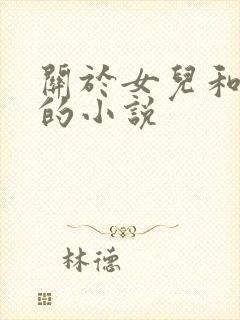 關於女兒和
的小說
林德